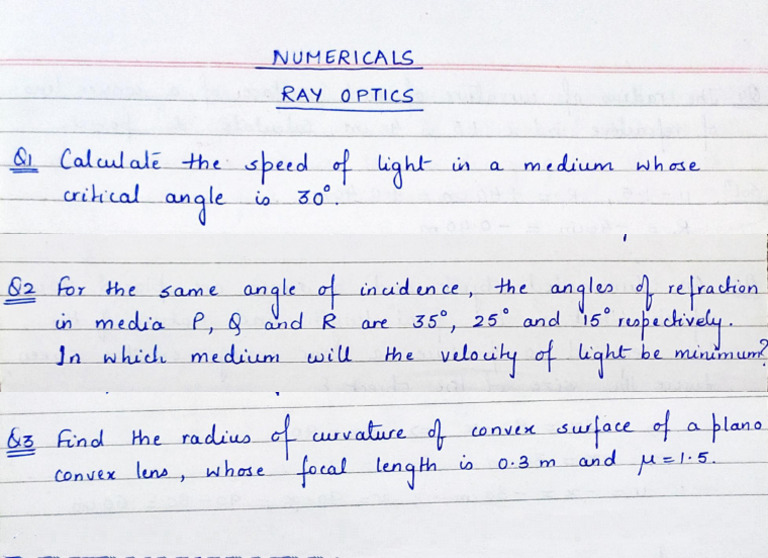 NUMERICALS
RAY OPTICS
Q1 Calculate the speed of light in a medium whose
critical angle is 30°.
Q2 For the same angle of incidence, the angles of refraction
in media P, Q and R are 35°, 25° and 15° respectively.
In which medium will the velocity of light be minimum?
Q3 Find the radius of curvature of convex surface of a plano
convex lens, whose focal length is 0.3 m and μ = 1.5.